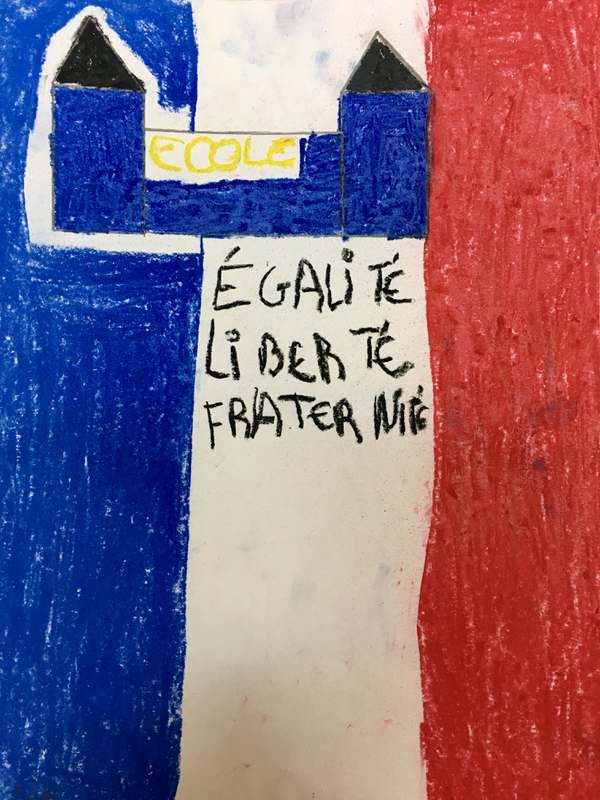 ECOLE
ÉGALiTÉ
LiBERTÉ
FRATERNITÉ